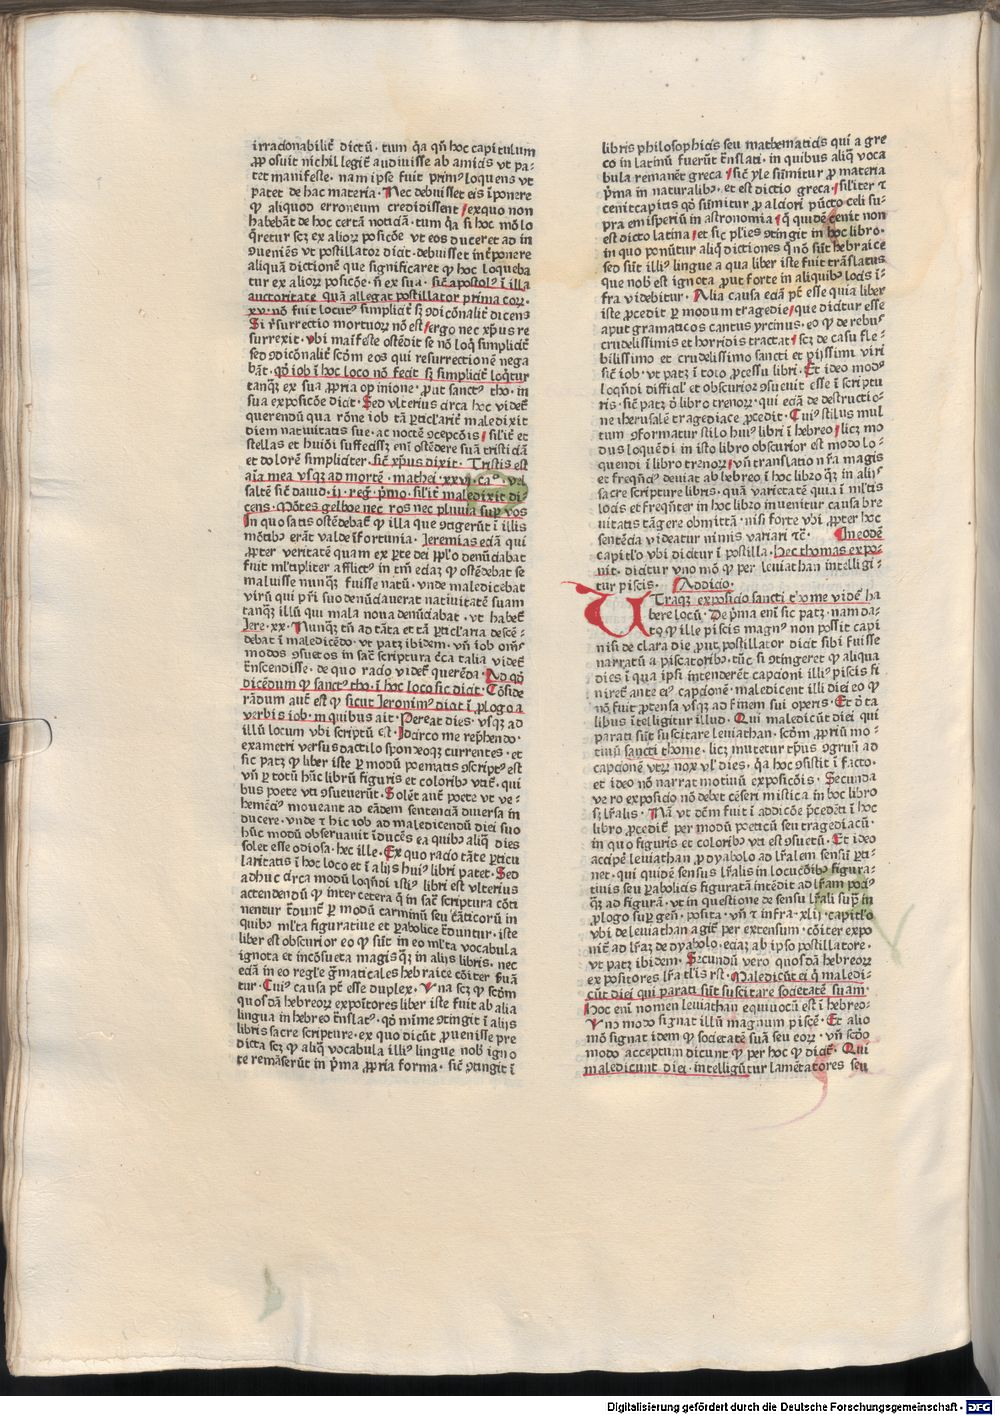 irracionabilit̄ dictū · tum q̄a qn̄ hoc capitulum
ꝓposuit nichil legit̄ audiuisse ab amicis vt pa-
tet manifeste · nam ipse fuit primꝰ loquens vt
patet de hac materia · Nec debuisset eis īponere
ꝙ aliquod erroneum credidissent / exquo non
habebāt de hoc certā noticiā · tum q̄a si hoc mō lo
q̄retur scꝫ ex alioꝝ posicōe vt eos duceret ad in
ꝯueniēs vt postillator dicit · debuisset int̄ponere
aliquā dictionē que significaret ꝙ hoc loqueba
tur ex alioꝝ posicōe · n̄ ex sua · sic̄ apostolꝰ ī illa
auctoritate quā allegat postillator prima coꝝ ·
xv · nō fuit locutꝰ simplicit̄ sꝫ ꝯdicōnalit̄ dicens
Si r̄surrectio mortuoꝝ nō est / ergo nec xp̄us re
surrexit · vbi maīfeste ostēdit se nō loq̄ simplicit̄
sed ꝯdicōnalit̄ scd̄m eos qui resurrectionē nega
bāt · qd̄ iob ī hoc loco nō fecit sꝫ simplicit̄ loq̄tur
tanqꝫ ex sua ꝓpria opinione · ꝓut sanctꝰ tho · in
sua exposicōe dicit · Sed vlterius circa hoc videt̄
querendū qua rōne iob tā ꝑticl̄arit̄ maledixit
diem natiuitatis sue · ac noctē ꝯcepcōis / silit̄ et
stellas et huiōi suffecissꝫ eni ostēdere suā tristiciā
et dolorē simpliciter · sic̄ xp̄us dixit · Tristis est
aīa mea vsqꝫ ad mortē · mathei · xxvi · caº · vel
saltē sic̄ dauid · ij · reḡ · p̄mo · silit̄ maledixit di-
cens · Mōtes gelboe nec ros nec pluuia suꝑ vos
In quo satis ostēdebat̄ ꝙ illa que ꝯtigerūt ī illis
mōtibꝰ erāt valde īfortunia · Jeremias eciā qui
ꝓpter veritatē quam ex ꝑte dei pp̄lo denūciabat
fuit ml̄tipliter afflictꝰ in tm̄ eciaꝫ ꝙ ostēdebat se
maluisse nunqꝫ fuisse natū · vnde maledicebat
virū qui pr̄i suo denūciauerat natiuitatē suam
tanqꝫ illū qui mala noua denūciabat · vt habet̄
Jere · xx · Nunqꝫ tn̄ ad tāta et tā ꝑticl̄aria descē-
debat ī maledicēdo · vt patꝫ ibidem · vn̄ iob om̄s
modos ꝯsuetos in sac̄ scriptura c̄ca talia videt̄
t̄nscendisse · de quo racio videt̄ querēda · Ad qd̄
dicēdum ꝙ sanctꝰ tho · ī hoc loco sic dicit · Cōside
rādum aut̄ est ꝙ sicut Jeronimꝰ dicit ī ꝓlogo a
verbis iob · in quibus ait · Pereat dies · vsqꝫ ad
illū locum vbi scriptū est · Idcirco me rep̄hendo ·
exametri versus dactilo sponxeoqꝫ currentes · et
sic patꝫ ꝙ liber iste ꝑ modū poematis ꝯscriptꝰ est
vn̄ ꝑ totū hūc librū figuris et coloribꝰ vtit̄ · qui
bus poete vti ꝯsueuerūt · Solēt aut̄ poete vt ve-
hemēciꝰ moueant ad eādem sentenciā diuersa in
ducere · vnde ⁊ hic iob ad maledicendū diei suo
hūc modū obseruauit īducēs ea quibꝰ aliqꝫ dies
solet esse odiosa · hec ille · Ex quo racio tāte ꝑticu
laritatis ī hoc loco et ī alijs huiꝰ libri patet · Sed
adhuc circa modū loqn̄di istiꝰ libri est vlterius
actendendū ꝙ inter cetera q̄ in sac̄ scriptura cōti
nentur t̄dunt̄ ꝑ modū carminū seu cāticoꝝ in
quibꝰ ml̄ta figuratiue et ꝑabolice t̄duntur · iste
liber est obscurior eo ꝙ sūt in eo ml̄ta vocabula
ignota et incōsueta magisqꝫ in alijs libris · nec
eciā in eo regl̄e gr̄maticales hebraice cōiter ẜuā
tur · Cuiꝰ causa pt̄ esse duplex · Vna scꝫ ꝙ scd̄m
quosdā hebreoꝝ expōitores liber iste fuit ab alia
lingua in hebreo t̄nslatꝰ · qd̄ mīme ꝯtingit ī alijs
libris sacre scripture · ex quo dicūt ꝓuenisse pre
dicta scꝫ ꝙ aliq̄ vocabula illiꝰ lingue nob̄ igno
te remāserūt in p̄ma ꝓpria forma · sic̄ ꝯtingit ī
libris philosophicis seu mathematicis qui a gre
co in latinū fuerūt t̄nslati · in quibus aliq̄ voca
bula remanēt greca / sic̄ yle sumitur ꝓ materia
p̄ma in naturalibꝰ · et est dictio greca / siliter ⁊
cenit capitis qd̄ sūmitur ꝓ alciori pūcto celi su-
pra emisperiū in astronomia / qd̄ quidē cenit non
est dicto latina / et sic pl̄ies ꝯtingit in hoc libro ·
in quo ponūtur aliq̄ dictiones q̄ nō sūt hebraice
sed sūt illiꝰ lingue a qua liber iste fuit trāslatus
que nob̄ est ignota ꝓut forte in aliquibꝰ locis ī-
fra videbitur · Alia causa eciā pt̄ esse quia liber
iste ꝓcedit ꝑ modum tragedie / que dicitur esse
aput gramaticos cantus yrcinus · eo ꝙ de rebꝰ
crudelissimis et horridis tractat / scꝫ de casu fle-
bilissimo et crudelissimo sancti et pijssimi viri
sic̄ iob · vt patꝫ ī toto ꝓcessu libri · Et ideo modꝰ
loqn̄di difficil̄ et obscurior ꝯsueuit esse ī scriptu
ris · sic̄ patꝫ ō libro trenoꝝ · qui eciā de destructio-
ne iherusalē tragediace ꝓcedit · Cuiꝰ stilus mul
tum ꝯformatur stilo huiꝰ libri ī hebreo / licꝫ mo
dus loquēdi in isto libro obscurior est modo lo-
quendi ī libro trenoꝝ / vn̄ translatio nr̄a magis
et freqn̄ciꝰ deuiat ab hebreo ī hoc libro qꝫ in alijs
sacre scripture libris · quā varietatē quia ī ml̄tis
locis et freqn̄ter in hoc libro inuenitur causa bre
uitatis tāgere obmittā · nisi forte vbi ꝓpter hoc
sentēcia videatur nimis variari ⁊c̄ · In eodē
capitl̓o vbi dicitur ī postilla · Hec thomas expo-
nit · dicitur vno mō ꝙ per leuiathan intelligi-
tur piscis · Addicio ·
UTraqꝫ exposicio sancti thome videt̄ ha
bere locū · De p̄ma eni sic patꝫ · nam da-
to ꝙ ille piscis magnꝰ non possit capi
nisi de clara die ꝓut postillator dicit sibi fuisse
narratū a piscatoribꝰ · tūc si ꝯtingeret ꝙ aliqua
dies ī qua ipsi intenderēt capcioni illiꝰ piscis fi
niret̄ ante eiꝰ capcionē · maledicent illi diei eo ꝙ
nō fuit ꝓtensa vsqꝫ ad finem sui operis · Et ō ta
libus ītelligitur illud · Qui maledicūt diei qui
parati sūt suscitare leuiathan · scōm ꝓpriū mo-
tiuū sancti thome · licꝫ mutetur tp̄us ꝯgruū ad
capcionē vtꝝ nox vl̓ dies · q̄a hoc ꝯsistit ī facto ·
et ideo nō narrat motiuū exposicōis · Secunda
vero exposicio nō debet cēseri mistica in hoc libro
sꝫ lr̄alis · Nā vt dc̄m fuit ī addicōe p̄cedēti ī hoc
libro ꝓcedit̄ per modū poeticū seu tragediacū ·
in quo figuris et coloribꝰ vti est ꝯsuetū · Et ideo
accipē leuiathan ꝓ dyabolo ad lr̄alem sensū ꝑti-
net · qui quidē sensus lr̄alis in locucōibꝰ figura-
tiuis seu ꝑabolicis figuratā intēdit ad lr̄am pociꝰ
qꝫ ad figurā · vt in questione de sensu lr̄ali suꝑ in
ꝓlogo suꝑ gen̄ · posita · vn̄ ⁊ infra · xlij · capitl̓o
vbi de leuiathan agit̄ per extensum · cōiter expo
nit̄ ad lr̄aꝫ de dyabolo · eciaꝫ ab ipso postillatore ·
vt patꝫ ibidem · Secundū vero quosdā hebreoꝝ
expositores lr̄a tl̓is est · Maledicūt ei q̄ maledi-
cūt diei qui parati sūt suscitare societatē suam ·
hoc eni nomen leuiathan equiuocū est ī hebreo ·
Vno modo signat illū magnum piscē · Et alio
mō signat idem ꝙ societatē suā seu eoꝝ · vn̄ scd̄o
modo acceptum dicunt ꝙ per hoc ꝙ dicit̄ · Qui
maledicunt diei · intelligūtur lamētatores seu
Digitalisierung gefördert durch die Deutsche Forschungsgemeinschaft - DFG